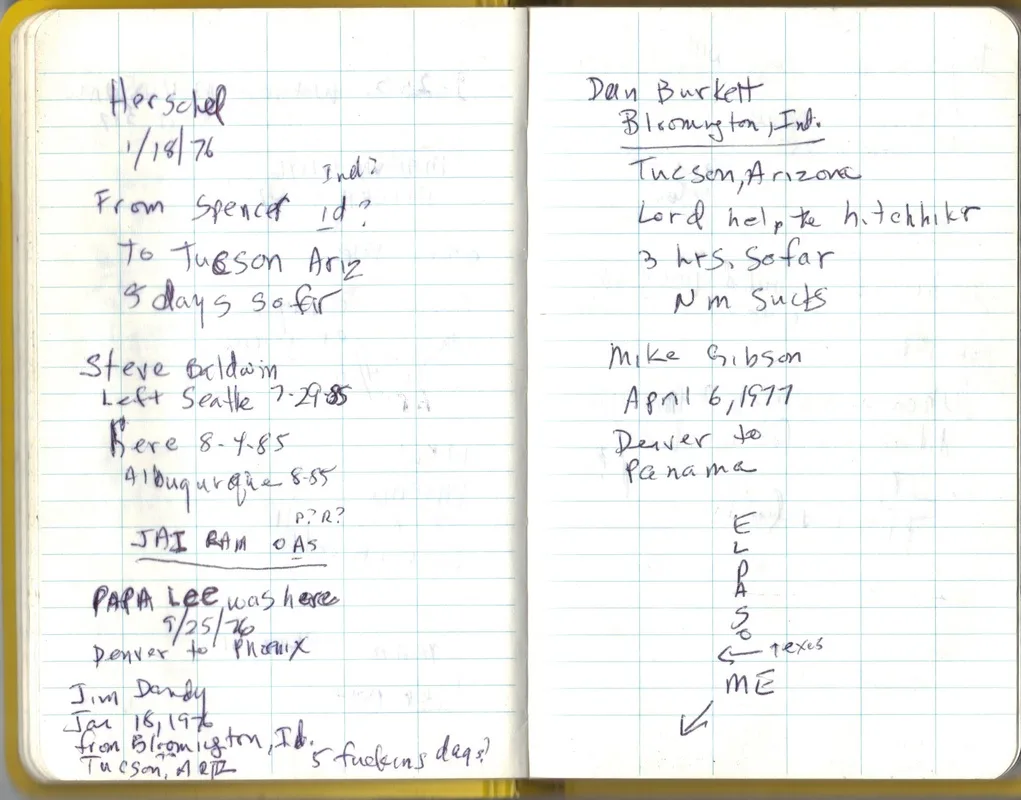 Herschel
1/18/76
Ind?
From Spencer id?
To Tucson Ariz
5 days so far
Steve Baldwin
Left Seatle 7-29-85
here 8-4-85
Albuqurque 8-85
P? R?
JAI RAM OAS
PAPA LEE was here
9/25/76
Denver to Phoenix
Jim Dandy
Jan 18, 1976
from Bloomington, Id.
Tucson, ARIZ
5 fucking days?
Dan Burkett
Bloomington, Ind.
Tucson, Arizona
Lord help the hitchhikr
3 hrs. so far
N m sucks
Mike Gibson
April 6, 1977
Denver to
Panama
E
L
P
A
S
O
← texes
ME